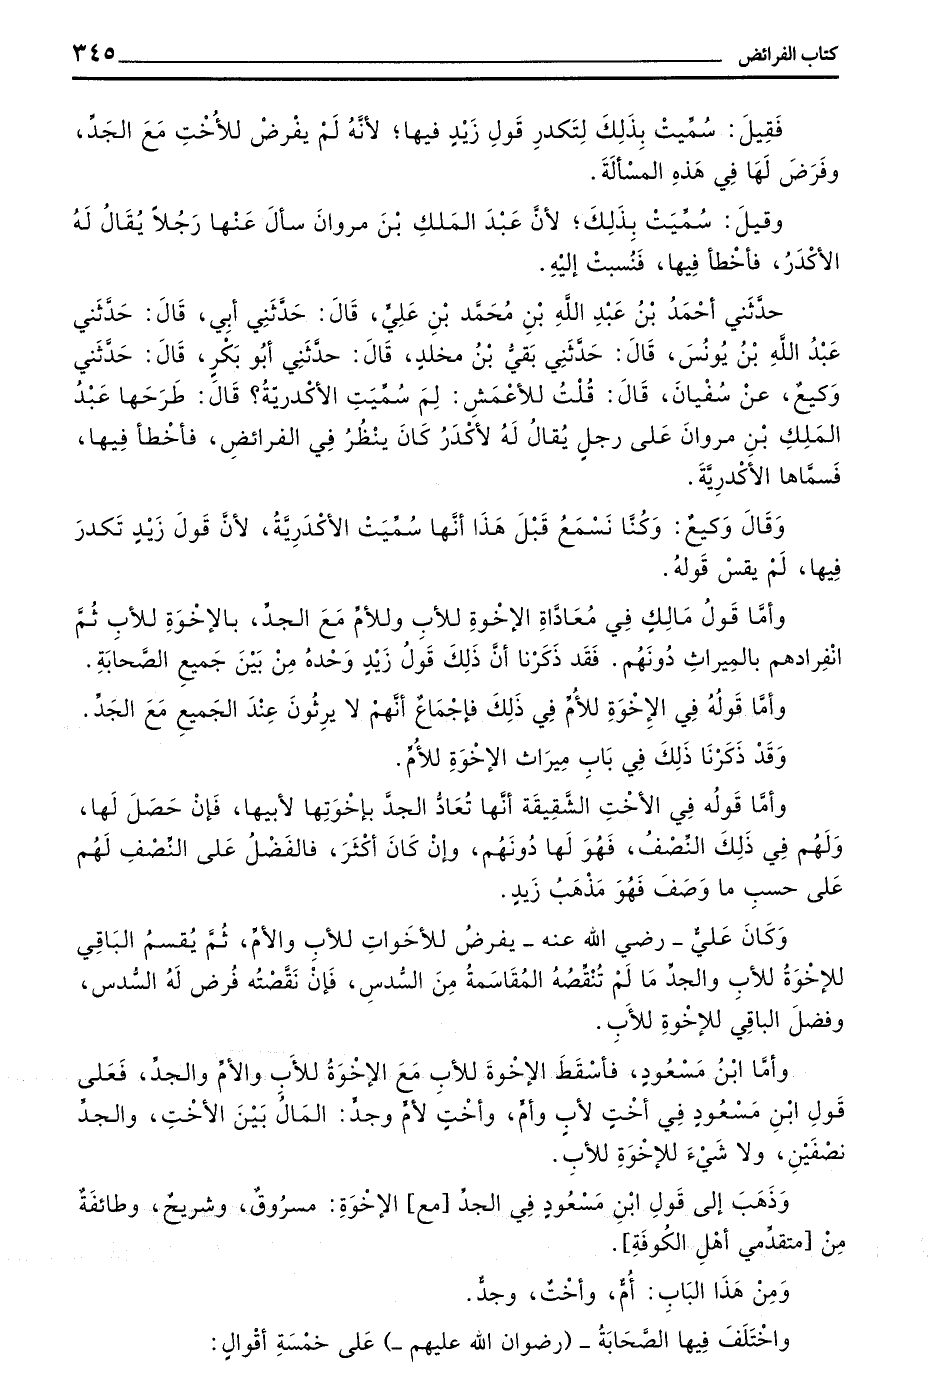 كتاب الفرائض ٣٤٥
فَقِيلَ: سُمِّيتْ بِذَلِكَ لِتَكدرِ قَولِ زَيْدٍ فيها؛ لأنَّهُ لَمْ يفْرضْ للأُخْتِ مَعَ الجَدِّ،
وفَرَضَ لَهَا فِي هَذهِ المسْألَةَ.
وقيلَ: سُمِّيَتْ بِذَلِكَ؛ لأنَّ عَبْدَ المَلكِ بْنَ مروانَ سألَ عَنْها رَجُلاً يُقَالُ لَهُ
الأكْدَرُ، فأخْطأ فِيها، فَنُسبتْ إليْهِ.
حدَّثَني أحْمَدُ بْنُ عَبْدِ اللَّهِ بْنِ مُحَمَّد بْنِ عَلِيٍّ، قَالَ: حَدَّثَنِي أبي، قَالَ: حَدَّثَني
عَبْدُ اللَّهِ بْنُ يُونُسَ، قَالَ: حَدَّثَنِي بَقيُّ بْنُ مخلدٍ، قَالَ: حدَّثَنِي أبُو بَكْرٍ، قَالَ: حدَّثَني
وَكيعٌ، عنْ سُفْيان، قَالَ: قُلْتُ للأعْمَشِ: لِمَ سُمِّيَتِ الأكْدريّةُ؟ قَالَ: طَرَحَها عَبْدُ
المَلِكِ بْنِ مروانَ عَلى رجلٍ يُقالُ لَهُ لأكْدَرُ كَانَ ينْظُرُ فِي الفرائضِ، فأخْطأ فِيها،
فَسمَّاها الأكْدريَّةَ.
وَقَالَ وَكيعٌ: وَكُنَّا نَسْمَعُ قَبْلَ هَذَا أنَّها سُمِّيَتْ الأكْدَرِيَّةُ، لأنَّ قَولَ زَيْدٍ تَكدرَ
فِيها، لَمْ يقسْ قَولهُ.
وأمَّا قَولُ مَالِكٍ فِي مُعَادَّاةِ الإخْوةِ للأبِ وللأمِّ مَعَ الجدِّ، بالإخْوَةِ للأبِ ثُمَّ
انْفِرادهم بالمِيراثِ دُونَهُم. فَقَد ذَكَرْنا أنَّ ذَلِكَ قَولُ زَيدٍ وَحْدهُ مِنْ بَيْنَ جَميعِ الصَّحابَةِ.
وأمَّا قَولُهُ فِي الإخْوَةِ للأُمِّ فِي ذَلِكَ فإجْماعٌ أنَّهمْ لا يرِثُونَ عِنْدَ الجَميعِ مَعَ الجَدِّ.
وَقَدْ ذَكَرْنَا ذَلِكَ فِي بَابِ مِيرَاث الإخْوَةِ للأُمِّ.
وأمَّا قَولُه فِي الأختِ الشَّقيقَة أنَّها تُعَادُّ الجدَّ بإخْوَتِها لأبيها، فَإنْ حَصَلَ لَها،
وَلَهُم فِي ذَلِكَ النِّصْفُ، فَهُوَ لَها دُونَهُم، وإنْ كَانَ أكْثَرَ، فالفَضْلُ عَلى النِّصْفِ لَهُم
عَلى حسبِ ما وَصَفَ فَهُوَ مَذْهَبُ زَيدٍ.
وَكَانَ عَليٌّ ـ رضي الله عنه ـ يفرضُ للأخواتِ للأبِ والأمِّ، ثُمَّ يُقسمُ البَاقي
للإخْوَةُ للأبِ والجدِّ مَا لَمْ تُنْقِصْهُ المُقَاسَمةُ مِنَ السُّدسِ، فَإنْ نَقَّصْته فُرض لَهُ السُّدس،
وفضلَ الباقِي للإخْوةِ للأَبِ.
وأمَّا ابْنُ مَسْعُودٍ، فأسْقَطَ الإخْوةَ للأبِ مَعَ الإخْوَةُ للأَبِ والأمِّ والجدِّ، فَعَلى
قَولِ ابْنِ مَسْعُودٍ فِي أختٍ لأبٍ وأمٍّ، وأختٍ لأمٍّ وجدٍّ: المَالُ بَيْنَ الأختِ، والجدِّ
نصْفَيْنِ، ولا شَيْءَ للإخْوَةِ للأبِ.
وَذَهَبَ إلى قَولِ ابْنِ مَسْعُودٍ فِي الجدِّ [مع] الإخْوَةِ: مسرُوقٌ، وشريحٌ، وطائفَةٌ
مِنْ [متقدِّمي أهْلِ الكُوفَةِ].
وَمِنْ هَذَا البَابِ: أُمٌّ، وأختٌ، وجدٌّ.
واخْتَلَفَ فِيها الصَّحَابَةُ ـ (رضوان الله عليهم ـ) عَلى خمْسَةِ أقْوالٍ: